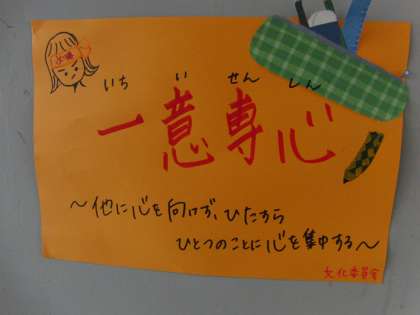 いち い せん しん
一意専心
～他に心を向けず、ひたすら
ひとつのことに心を集中する～
文化委員会